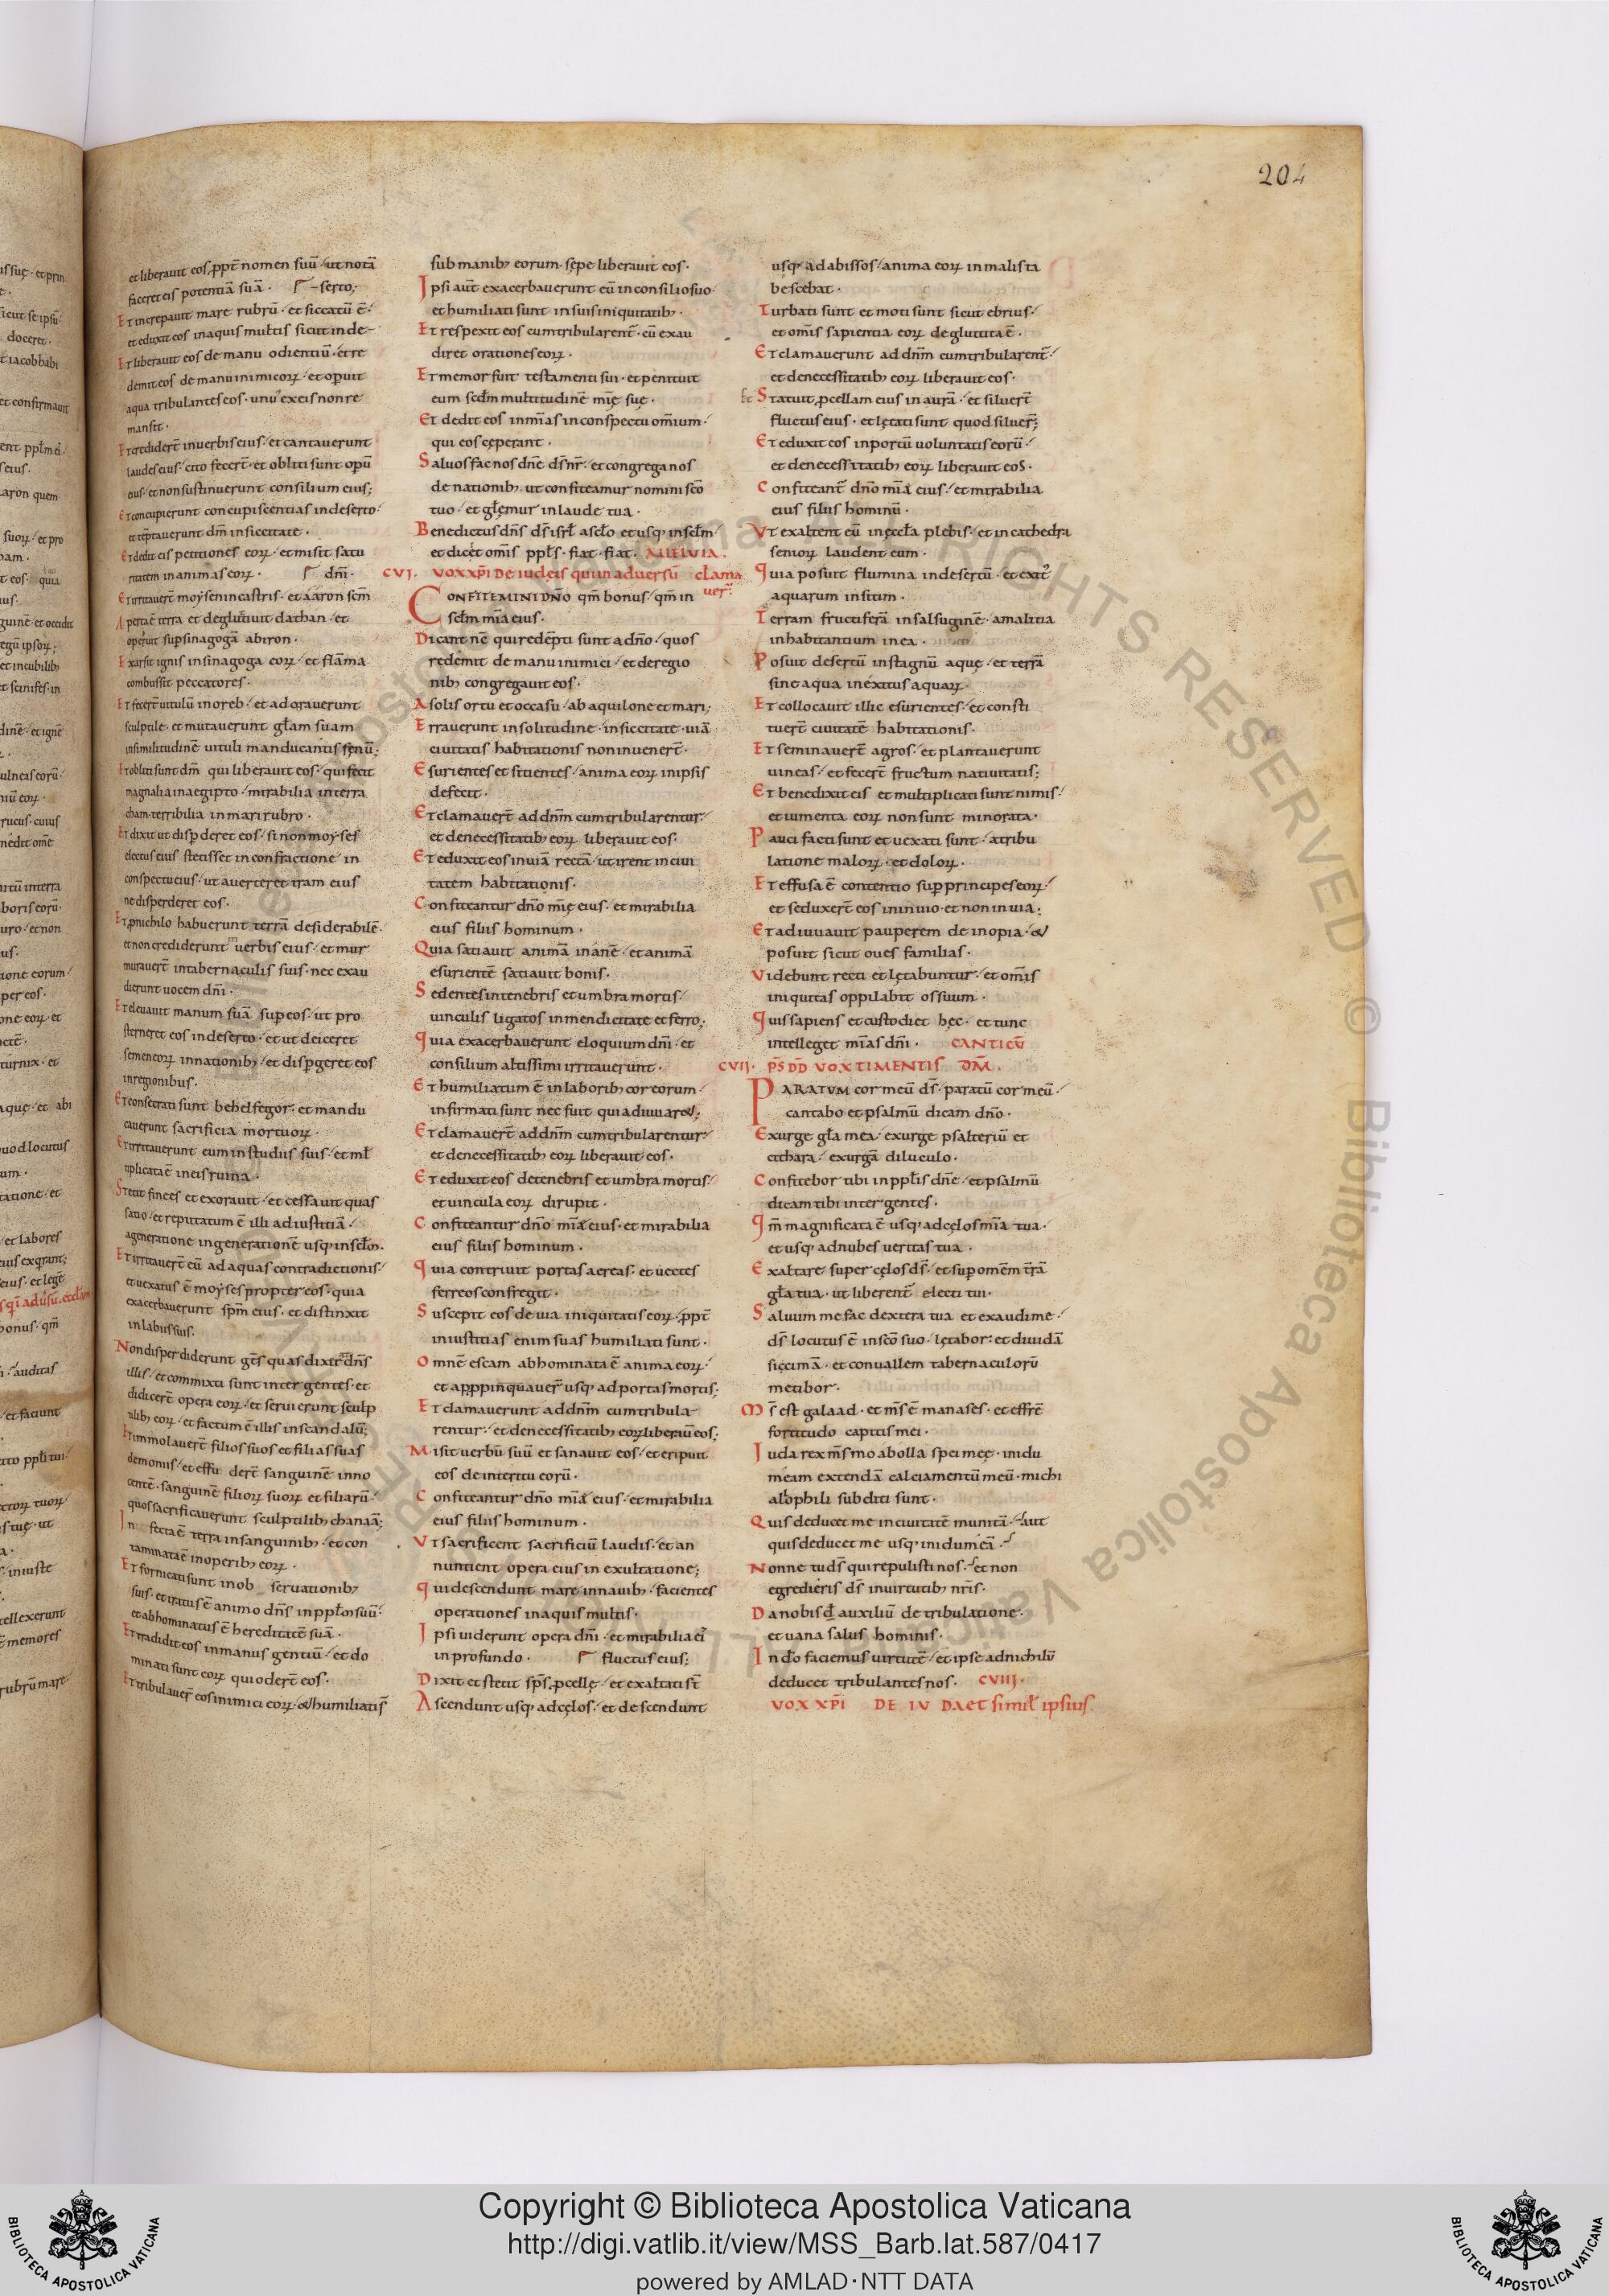 204
et liberauit eos ꝓpt̄ nomen suū ut notā
faceret eis potentiā suā. serto;
Et increpauit mare rubrū. et siccatū ē.
et eduxit eos in aquis multis sicut in de-
Et liberauit eos de manu odientiū. et re
demit eos de manu inimicoꝝ. et opuit
aqua tribulantes eos. unus ex eis non re
mansit.
Et crediderт̄ in uerbis eius. et cantauerunt
laudes eius. cito fecert̄. et obliti sunt opū
eius. et non sustinuerunt consilium eius;
Et concupierunt concupiscentias in deserto.
et tēptauerunt dm̄ in siccitate.
Et dedit eis petitiones eoꝝ. et misit satu
ritatem in animas eoꝝ. dn̄i.
Et irritauert̄ moysen in castris. et aaron scm̄
Aperta ē terra et deglutiuit dathan. et
operuit sup sinagogā abiron.
Exarsit ignis in sinagoga eoꝝ. et flāma
combussit peccatores.
Et fecert̄ uitulū in oreb. et adorauerunt
sculptile. et mutauerunt gl̄am suam
in similitudinē uituli manducantis fenū;
Et obliti sunt dm̄ qui liberauit eos. qui fecit
magnalia in aegipto. mirabilia in terra
cham. terribilia in mari rubro.
Et dixit ut disp̱deret eos. si non moyses
electus eius stetisset in confractione in
conspectu eius. ut auerteret iram eius
ne disperderet eos.
Et ꝓ nichilo habuerunt terrā desiderabilē.
et non crediderunt uerbis eius. et mur
murauert̄ in tabernaculis suis. nec exau
dierunt uocem dn̄i.
Et eleuauit manum suā sup eos. ut pro
sterneret eos in deserto. et ut deiceret
semen eoꝝ in nationib; et disp̱geret eos
in regionibus.
Et consecrati sunt behelfegor. et mandu
cauerunt sacrificia mortuoꝝ.
Et irritauerunt eum in studiis suis. et ml̄
tiplicata ē in eis ruina.
Stetit finees et exorauit. et cessauit quas
satio. et reputatum ē illi ad iustitiā.
a generatione in generationē usq; in scl̄m.
Et irritauert̄ eū ad aquas contradictionis.
et uexatus ē moyses propter eos. quia
exacerbauerunt spm̄ eius. et distinxit
in labiis suis.
Non disperdiderunt gt̄s quas dixit dn̄s
illis. et commixti sunt inter gentes. et
didicert̄ opera eoꝝ. et seruierunt sculp
tilib; eoꝝ. et factum ē illis in scandalū;
Et immolauert̄ filios suos et filias suas
demoniis. et effuderт̄ sanguinē inno
centē. sanguinē filioꝝ suoꝝ et filiarū.
quos sacrificauerunt sculptilib; chanaā;
Infecta ē terra in sanguinib; et con
taminata ē in operib; eoꝝ.
Et fornicati sunt in obseruationib;
suis. et iratus ē animo dn̄s in ppl̄m suū.
et abhominatus ē hereditatē suā.
Et tradidit eos in manus gentiū. et do
minati sunt eoꝝ qui odert̄ eos.
Et tribulauer̄ eos inimici eoꝝ. & humiliati st̄
sub manib; eorum. sępe liberauit eos.
Ipsi aut̄ exacerbauerunt eū in consilio suo.
et humiliati sunt in suis iniquitatib;.
Et respexit eos cum tribularent̄. eū exau
diret orationes eoꝝ.
Et memor fuit testamenti sui. et penituit
eum scd̄m multitudinē mię̄ suę.
Et dedit eos in mīas in conspectu om̄ium.
qui eos cęperant.
Saluos fac nos dn̄e ds̄ nr̄. et congrega nos
de nationib; ut confiteamur nomini scō
tuo. et gl̄emur in laude tua.
Benedictus dn̄s ds̄ isrl̄ a scl̄o et usq; in scl̄m.
et dicet omīs ppl̄s. fiat. fiat. ALLELVIA.
CVI. VOX XPI DE iudęis qui in aduersū cl̄ama
uer̄.
CONFITEMINI DN̄O qm̄ bonus. qm̄ in
scl̄m mīa eius.
Dicant nc̄ qui redēpti sunt a dn̄o. quos
redemit de manu inimici. et de regio
nib; congregauit eos.
A solis ortu et occasu. ab aquilone et mari;
Errauerunt in solitudine. in siccitate. uiā
ciuitatis habitationis non inuenert̄.
Esurientes et sitientes. anima eoꝝ in ipsis
defecit.
Et clamauert̄ ad dn̄m cum tribularentur.
et de necessitatib; eoꝝ liberauit eos.
Et eduxit eos in uiā rectā. ut irent in ciui
tatem habitationis.
Confiteantur dn̄o mię̄ eius. et mirabilia
eius filiis hominum.
Quia satiauit animā inanē. et animā
esurientē satiauit bonis.
Sedentes in tenebris et umbra mortis.
uinculis ligatos in mendicitate et ferro;
Quia exacerbauerunt eloquium dn̄i. et
consilium altissimi irritauerunt.
Et humiliatum ē in laborib; cor eorum.
infirmati sunt nec fuit qui adiuuar&;
Et clamauert̄ ad dn̄m cum tribularentur.
et de necessitatib; eoꝝ liberauit eos.
Et eduxit eos de tenebris et umbra mortis.
et uincula eoꝝ dirupit.
Confiteantur dn̄o mīa eius. et mirabilia
eius filiis hominum.
Quia contriuit portas aereas. et uectes
ferreos confregit.
Suscepit eos de uia iniquitatis eoꝝ. ꝓpt̄
iniustitias enim suas humiliati sunt.
Omnē escam abhominata ē anima eoꝝ.
et appropinquauer̄ usq; ad portas mortis;
Et clamauerunt ad dn̄m cum tribula-
rentur. et de necessitatib; eoꝝ liberauit eos;
Misit uerbū suū et sanauit eos. et eripuit
eos de interitu eorū.
Confiteantur dn̄o mīa eius. et mirabilia
eius filiis hominum.
Vt sacrificent sacrificiū laudis. et an
nuntient opera eius in exultatione;
Qui descendunt mare in nauib;. facientes
operationes in aquis multis.
Ipsi uiderunt opera dn̄i. et mirabilia ei'
in profundo. fluctus eius;
Dixit et stetit sps̄ ꝓcellę. et exaltati st̄
Ascendunt usq; ad cęlos. et descendunt
usq; ad abissos. anima eoꝝ in malis ta
bescebat.
Turbati sunt et moti sunt sicut ebrius.
et omīs sapientia eoꝝ deglutita ē.
Et clamauerunt ad dn̄m cum tribularent̄.
et de necessitatib; eoꝝ liberauit eos.
Et Statuit ꝓcellam eius in aurā. et siluert̄
fluctus eius. et lętati sunt quod siluer̄;
Et eduxit eos in portū uoluntatis eorū.
et de necessitatib; eoꝝ liberauit eos.
Confiteant̄ dn̄o mīa eius. et mirabilia
eius filiis hominū.
Vt exaltent eū in ęccl̄a plebis. et in cathedra
senioꝝ laudent eum.
Quia posuit flumina in desertū. et exit'
aquarum in sitim.
Terram fructiferā in salsuginē. a malitia
inhabitantium in ea.
Posuit desertū in stagnū aquę. et terrā
sine aqua in exitus aquaꝝ.
Et collocauit illic esurientes. et consti
tuert̄ ciuitatē habitationis.
Et seminauert̄ agros. et plantauerunt
uineas. et fecert̄ fructum natiuitatis;
Et benedixit eis et multiplicati sunt nimis.
et iumenta eoꝝ non sunt minorata.
Pauci facti sunt et uexati sunt. a tribu
latione maloꝝ. et doloꝝ.
Et effusa ē contentio sup principes eoꝝ.
et seduxert̄ eos in inuio. et non in uia;
Et adiuuauit pauperem de inopia. &
posuit sicut oues familias.
Videbunt recti et lętabuntur. et omīs
iniquitas oppilabit os suum.
Quis sapiens et custodiet hęc. et tunc
intelleget mīas dn̄i. CANTICV̄
CVII. PS̄ DD̄ VOX TIMENTIS DM̄.
PARATVM cor meū ds̄. paratū cor meū.
cantabo et psalmū dicam dn̄o.
Exurge gl̄a mea. exurge psalteriū et
cithara. exurgā diluculo.
Confitebor tibi in ppl̄is dn̄e. et psalmū
dicam tibi inter gentes.
Qm̄ magnificata ē usq; ad cęlos mīa tua.
et usq; ad nubes ueritas tua.
Exaltare super cęlos ds̄. et sup omēm t̄rā
gl̄a tua. ut liberent̄ electi tui.
Saluum me fac dextera tua et exaudi me.
ds̄ locutus ē in scō suo. lętabor. et diuidā
sięcimā. et conuallem tabernaculorū
metibor.
Ms̄ est galaad. et ms̄ ē manases. et effrē
fortitudo capitis mei.
Iuda rex ms̄ moab olla spei męę. in idu
meam extendā calciamentū meū. michi
alophili subditi sunt.
Quis deducet me in ciuitatē munitā. aut
quis deducet me usq; in idumeā.
Nonne tu ds̄ qui repulisti nos. et non
egredieris ds̄ in uirtutib; nr̄is.
Da nobis d̄ auxiliū de tribulatione.
et uana salus hominis.
In dō faciemus uirtutē. et ipse ad nichilū
deducet tribulantes nos. CVIII.
VOX XPI DE IVDA et simil̄ ipsius
Copyright © Biblioteca Apostolica Vaticana
http://digi.vatlib.it/view/MSS_Barb.lat.587/0417
powered by AMLAD·NTT DATA
BIBLIOTECA APOSTOLICA VATICANA
BIBLIOTECA APOSTOLICA VATICANA